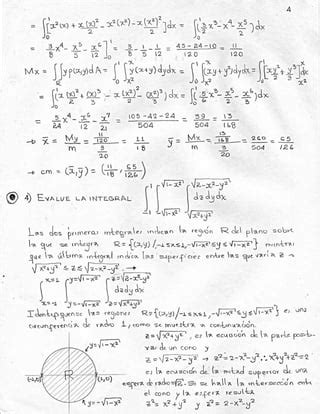 4
= ∫₀¹ [x²(x) + x(x)²/2 - x²(x²) - x(x²)²/2] dx = ∫₀¹ (3/2 x³ - x⁴ - x⁵/2) dx
= 3/8 x⁴ - x⁵/5 - x⁶/12 ]₀¹ = 3/8 - 1/5 - 1/12 = 45-24-10/120 = 11/120
Mx = ∫∫ y ρ(x,y) dA = ∫₀¹ ∫ₓ²ˣ y(x+y) dy dx = ∫₀¹ ∫ₓ²ˣ (xy + y²) dy dx = ∫₀¹ [xy²/2 + y³/3]ₓ²ˣ dx
= ∫₀¹ [x(x)²/2 + (x)³/3 - x(x²)²/2 - (x²)³/3] dx = ∫₀¹ (5/6 x³ - x⁵/2 - x⁶/3) dx
= 5/24 x⁴ - x⁶/12 - x⁷/21 = 105-42-24/504 = 39/504 = 13/168
→ x̄ = My/m = 11/120 / 3/20 = 11/18 ȳ = Mx/m = 13/168 / 3/20 = 260/504 = 65/126
→ cm = (x̄, ȳ) = (11/18, 65/126)
4) EVALUE LA INTEGRAL ∫₋₁¹ ∫ -√1-x² √1-x² ∫ √x²+y² √2-x²-y² dz dy dx
Las dos primeras integrales indican la región R del plano sobre
la que se integra R = {(x,y) / -1≤x≤1, -√1-x² ≤ y ≤ √1-x²} mientras
que la última integral indica las superficies entre las que varía z →
√x²+y² ≤ z ≤ √2-x²-y² →
∫ x=-1 x=1 ∫ y=-√1-x² y=√1-x² ∫ z=√x²+y² z=√2-x²-y² dz dy dx
Identifiquemos las regiones R = {(x,y) / -1≤x≤1, -√1-x² ≤ y ≤ √1-x²} es una
circunferencia de radio 1, como se muestra a continuación.
z = √x²+y², es la ecuación de la parte positi-
va de un cono y
y = √1-x²
z = √2-x²-y² → z² = 2-x²-y² ∴ x²+y²+z² = 2
es la ecuación de la mitad superior de una
(-1,0) R (1,0)
esfera de radio √2. Si se halla la intersección entre
el cono y la esfera resulta
y = -√1-x²
z² = x²+y² y z² = 2-x²-y²